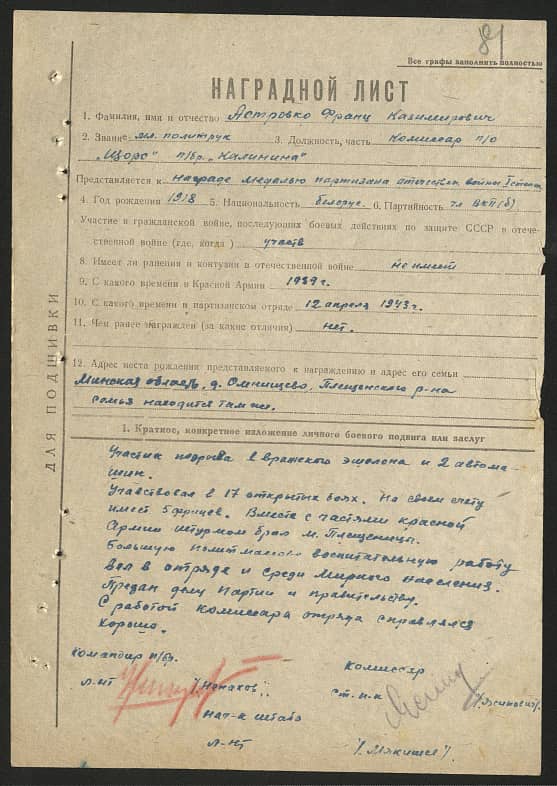 81
Все графы заполнить полностью
НАГРАДНОЙ ЛИСТ
1. Фамилия, имя и отчество Астровко Франц Казимирович
2. Звание мл. политрук 3. Должность, часть Комиссар п/о
"Щорс" п/бр. "Калинина"
Представляется к награде медалью партизана отечествен войны I степени
4. Год рождения 1918 5. Национальность белорус. 6. Партийность чл ВКП(б)
Участие в гражданской войне, последующих боевых действиях по защите СССР в отече-
ственной войне (где, когда) участв
8. Имеет ли ранения и контузии в отечественной войне не имеет
9. С какого времени в Красной Армии 1939 г.
10. С какого времени в партизанском отряде 12 апреля 1943 г.
11. Чем ранее награжден (за какие отличия) нет.
12. Адрес места рождения представляемого к награждению и адрес его семьи
Минская область, д. Омнишево, Плещенского р-на
семья находится там же.
ДЛЯ ПОДШИВКИ
1. Краткое, конкретное изложение личного боевого подвига или заслуг
Участник подрыва 1 вражского эшелона и 2 автома-
шин.
Участвовал в 17 открытых боях. На своем счету
имеет 5 фрицев. Вместе с частями красной
Армии штурмом брал м. Плещеницы.
Большую политмассов воспитательную работу
вел в отряде и среди мирного населения.
Предан делу Партии и правительству.
С работой комиссара отряда справлялся
хорошо.
Командир п/бр. Комиссар
Л-нт /Монахов/. ст. п-к /Ясинович/.
Нач-к штаба
Л-нт /Мякишев/.